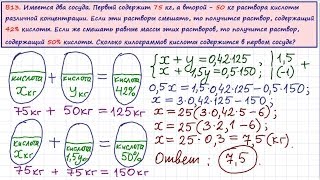 В13. Имеется два сосуда. Первый содержит 75 кг, а второй - 50 кг раствора кислоты
различной концентрации. Если эти растворы смешать, то получится раствор, содержащий
42% кислоты. Если же смешать равные массы этих растворов, то получится раствор,
содержащий 50% кислоты. Сколько килограммов кислоты содержится в первом сосуде?
кислота + кислота = кислота
x кг y кг 42%
75кг + 50кг = 125кг
кислота + кислота = кислота
x кг 1,5y кг 50%
75кг + 75кг = 150кг
{ x + y = 0,42·125 | 1,5
x + 1,5y = 0,5·150 | (-1)
0,5x = 1,5·0,42·125 - 0,5·150
x = 3·0,42·125 - 150
x = 25(3·0,42·5 - 6)
x = 25(3·2,1 - 6)
x = 25·0,3 = 7,5 (кг).
Ответ: 7,5.